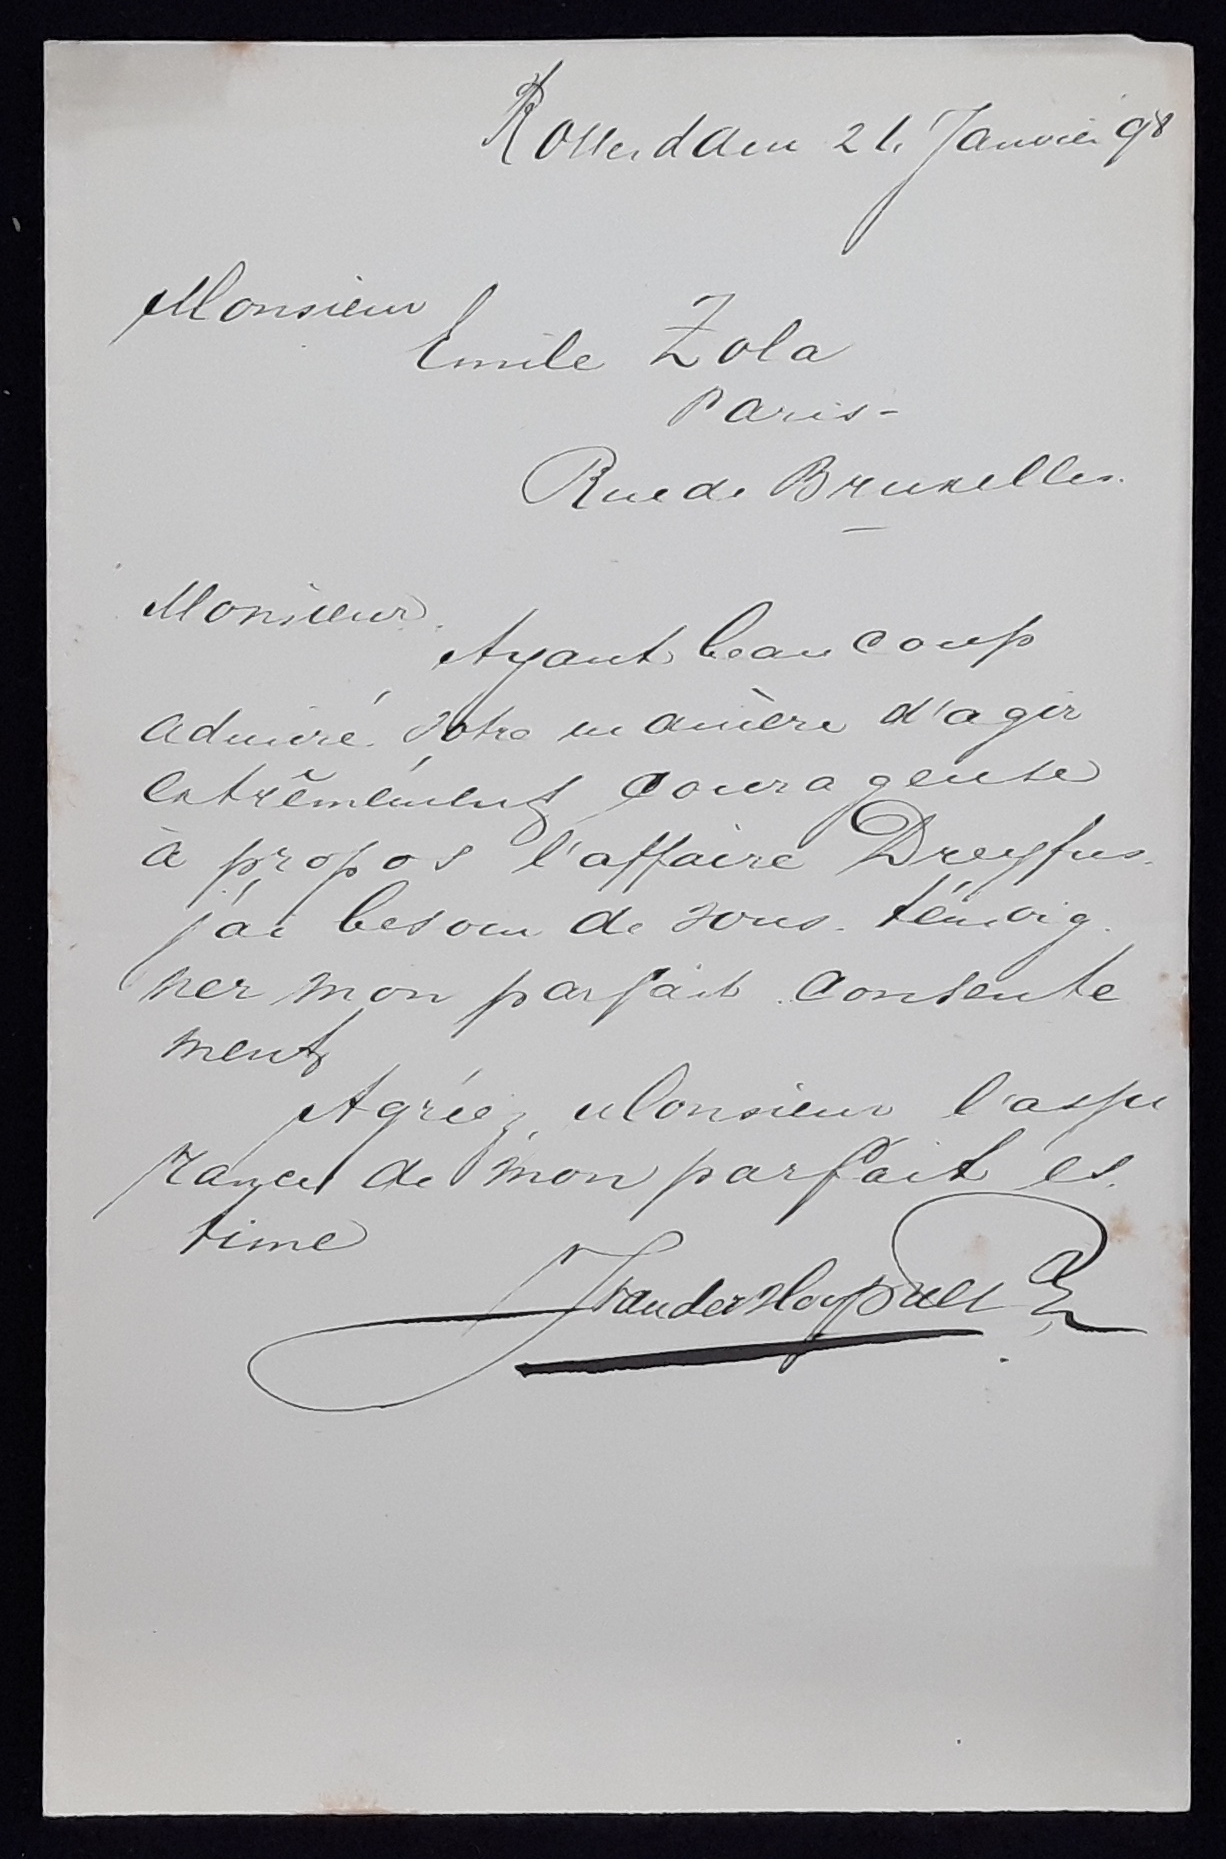 Rotterdam 21 Janvier 98
Monsieur
Emile Zola
Paris-
Rue de Bruxelles.
Monsieur.
Ayant beaucoup
admiré votre manière d'agir
extrêmement courageuse
à propos l'affaire Dreyfus.
j'ai besoin de vous témoig
ner mon parfait consente
ment
Agréez, Monsieur l'assu
rance de mon parfait es
time